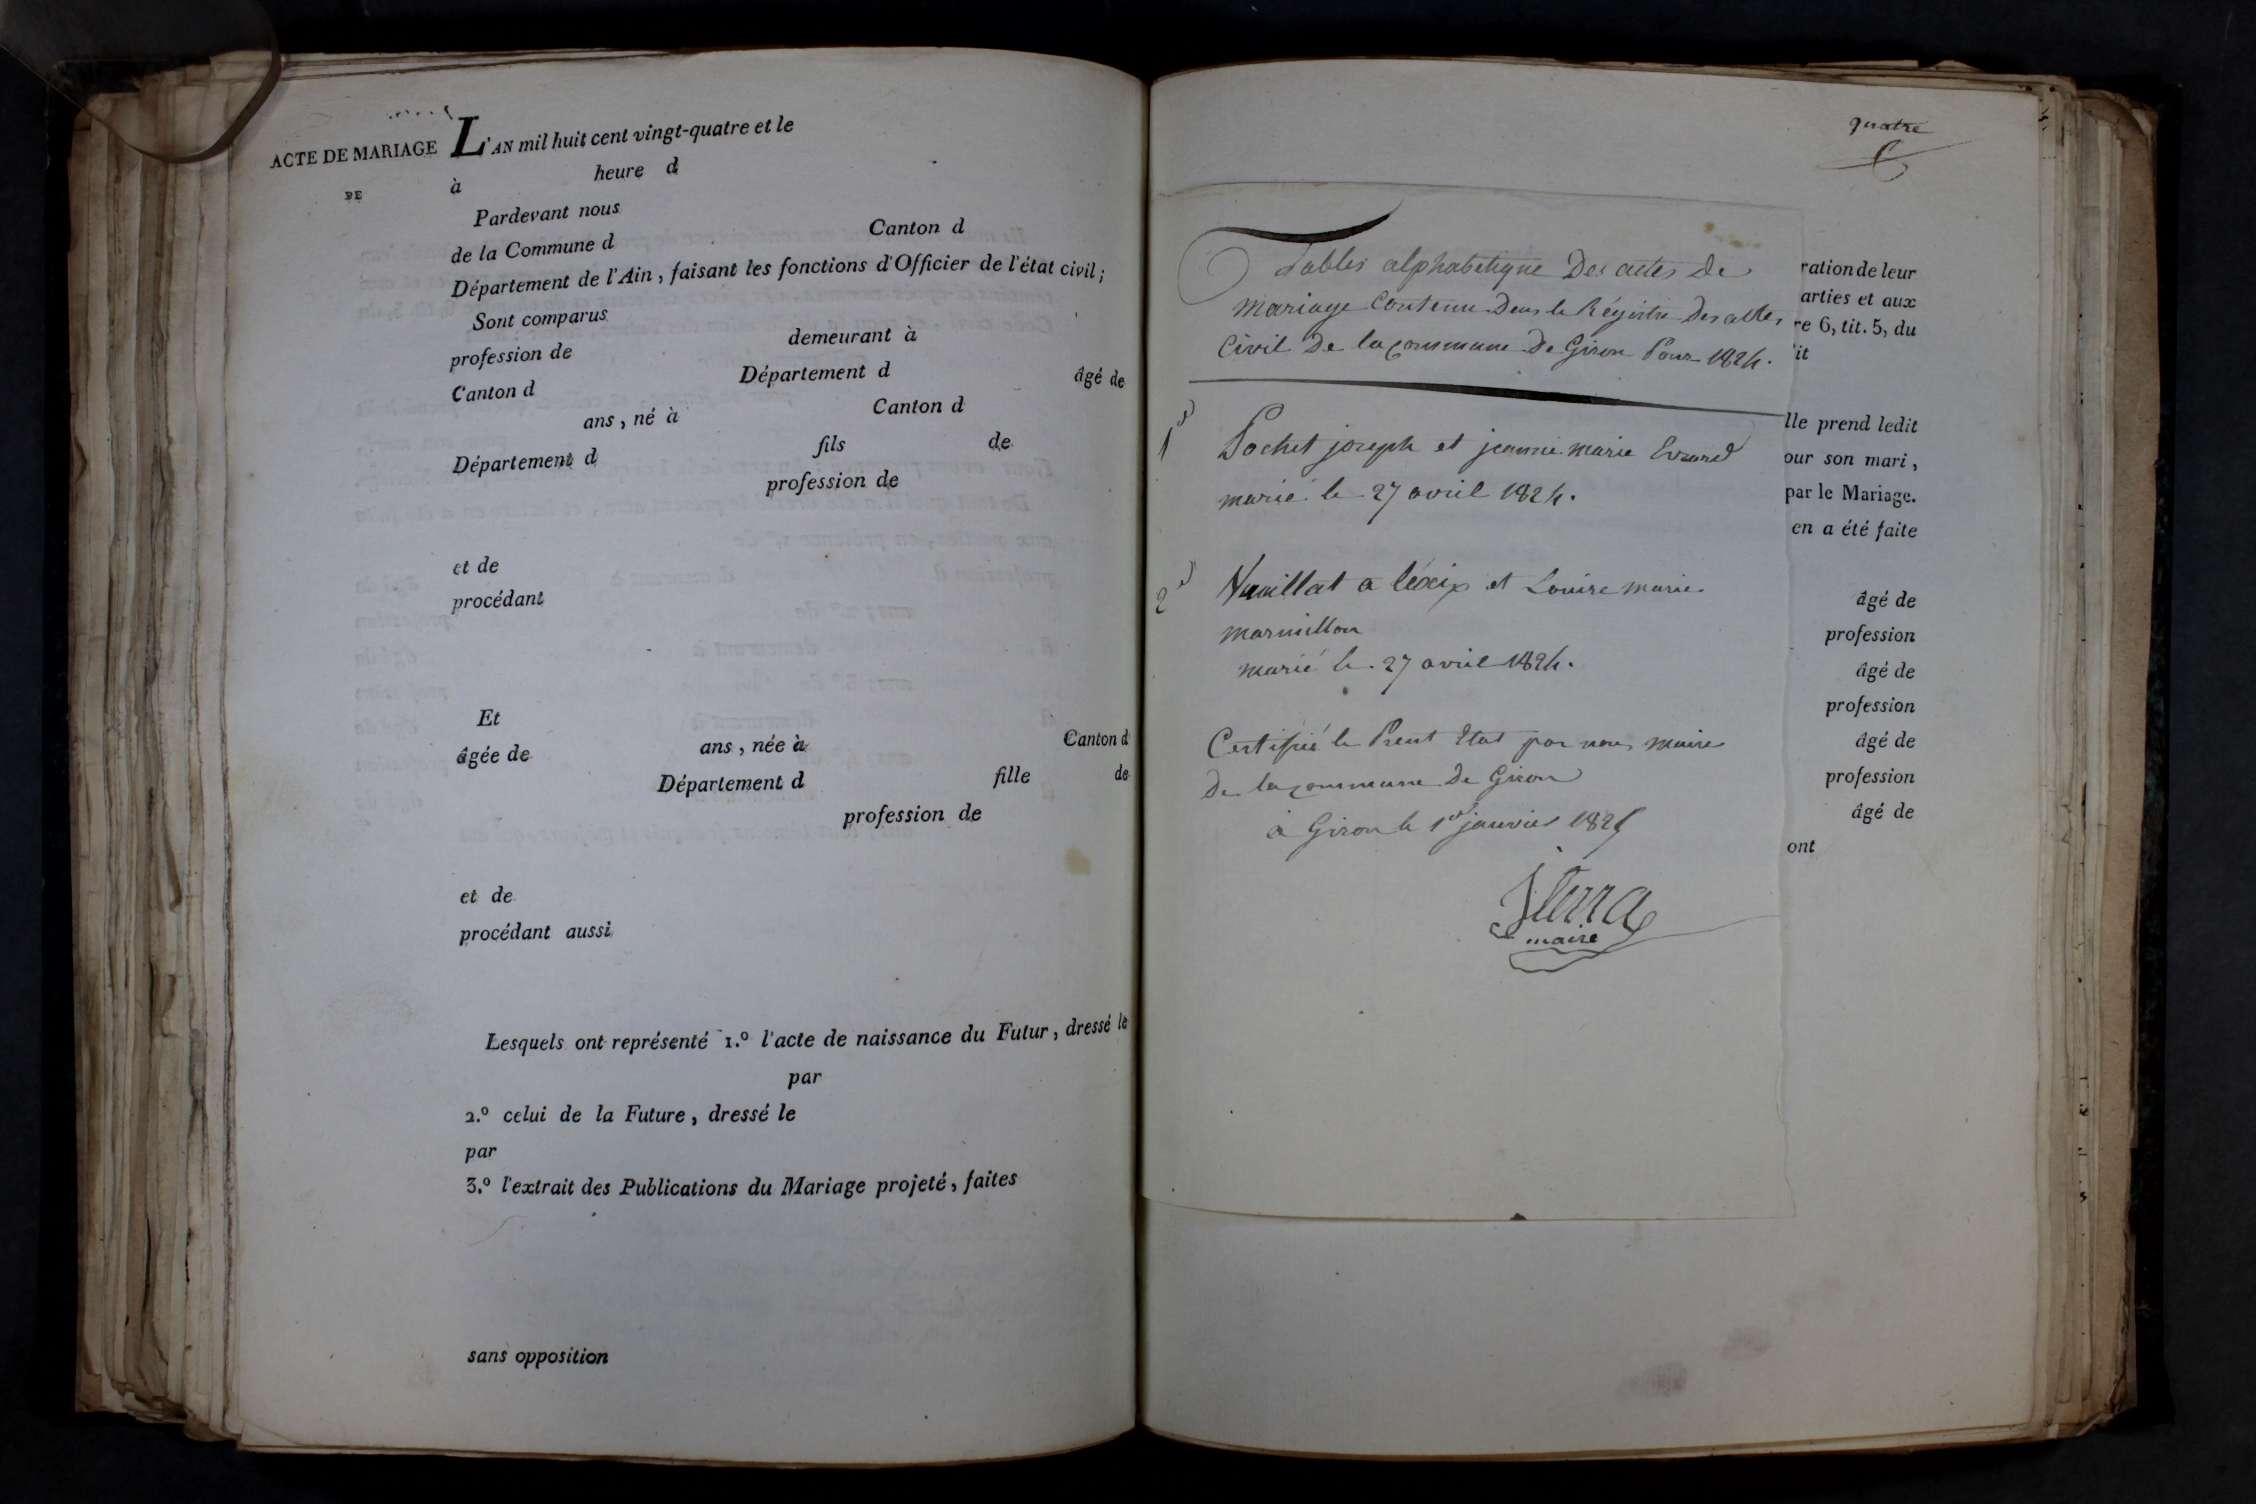 ACTE DE MARIAGE
DE
L'AN mil huit cent vingt-quatre et le
à heure d
Pardevant nous
de la Commune d Canton d
Département de l'Ain, faisant les fonctions d'Officier de l'état civil;
Sont comparus
profession de demeurant à
Canton d Département d âgé de
ans, né à Canton d
Département d fils de
profession de
et de
procédant
Et
âgée de ans, née à Canton d
Département d fille de
profession de
et de
procédant aussi
Lesquels ont représenté 1.º l'acte de naissance du Futur, dressé le
par
2.º celui de la Future, dressé le
par
3.º l'extrait des Publications du Mariage projeté, faites
sans opposition
quatre
Tables alphabetique Des actes de
mariage Contenu Dans le Régistre Des actes
Civil De la commune De Giron Pour 1824.
1
Pochet joseph et jeanne marie Evrard
marié le 27 avril 1824.
2
Vuaillat a léxis et Louise marie
marmillon
marié le 27 avril 1824.
Certifié le Preut Etat par nous maire
De la commune De Giron
à Giron le 1er janvier 1825
maire
ration de leur
arties et aux
re 6, tit. 5, du
it
lle prend ledit
our son mari,
par le Mariage.
en a été faite
âgé de
profession
âgé de
profession
âgé de
profession
âgé de
ont